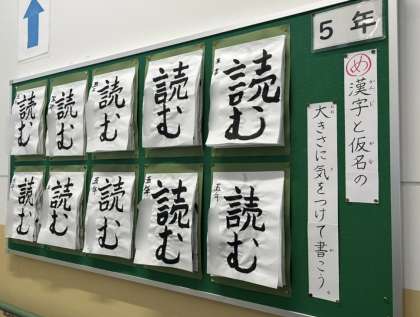 5年
め 漢字と仮名の
大きさに気をつけて書こう。
読む
五年
読む
読む
読む
読む
読む
五年
読む
五年
読む
五年
読む
読む
読む